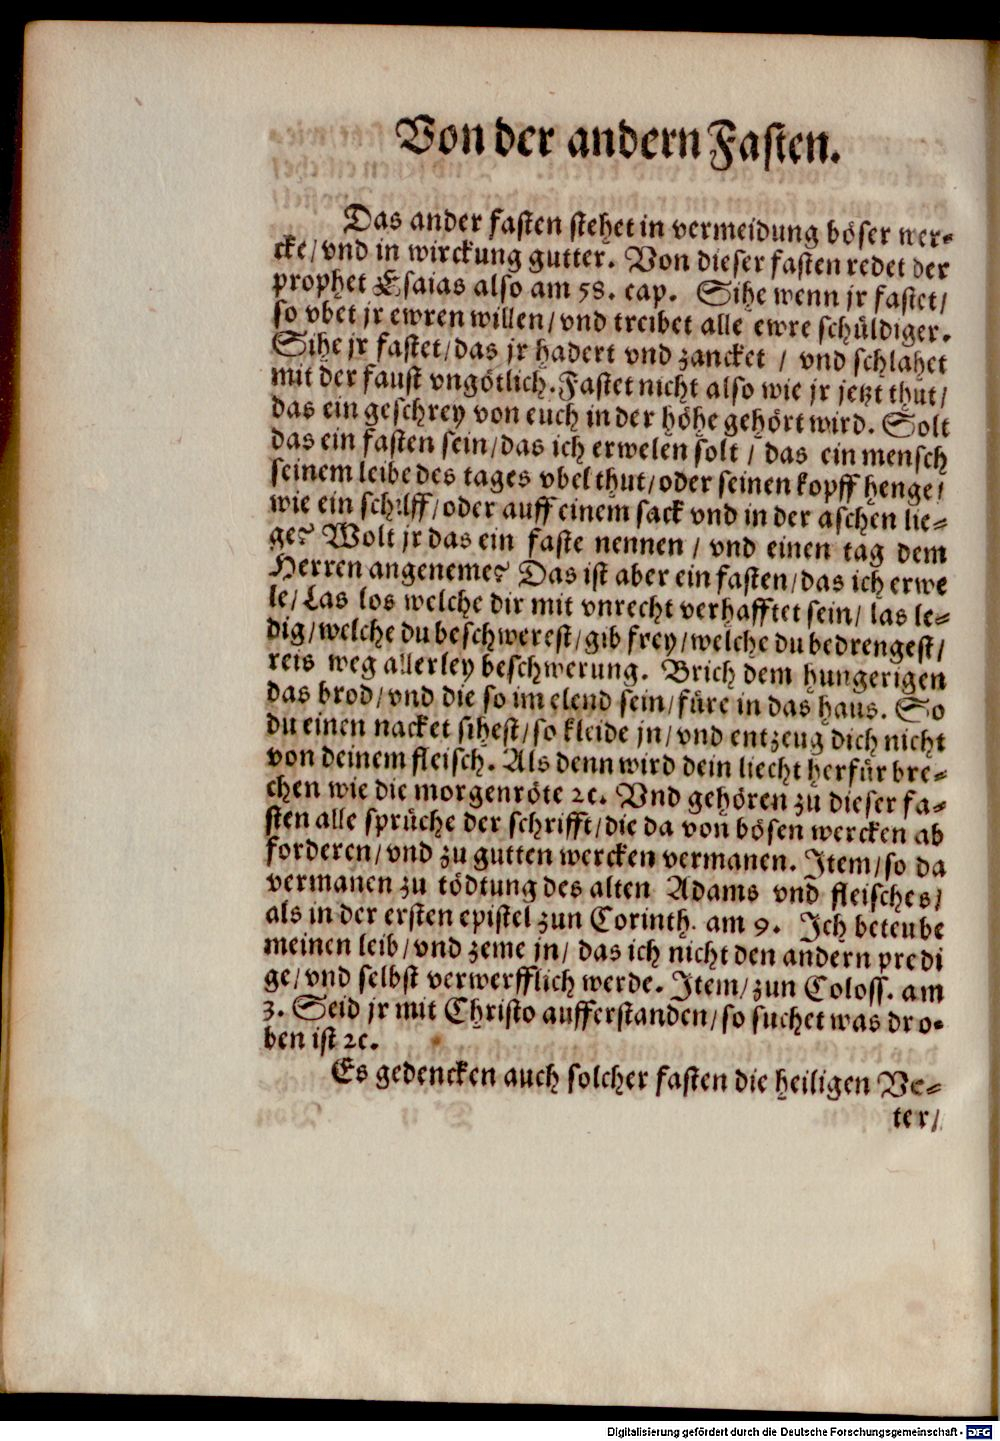 Von der andern Fasten.
Das ander fasten stehet in vermeidung böser wer-
cke/ vnd in wirckung gutter. Von dieser fasten redet der
prophet Esaias also am 58. cap. Sihe wenn jr fastet/
so vbet jr ewren willen/ vnd treibet alle ewre schüldiger.
Sihe jr fastet/ das jr hadert vnd zancket / vnd schlahet
mit der faust vngötlich. Fastet nicht also wie jr jetzt thut/
das ein geschrey von euch in der höhe gehört wird. Solt
das ein fasten sein/ das ich erwelen solt / das ein mensch
seinem leibe des tages vbel thut/ oder seinen kopff henge/
wie ein schilff/ oder auff einem sack vnd in der aschen lie-
ge? Wolt jr das ein faste nennen / vnd einen tag dem
Herren angeneme? Das ist aber ein fasten/ das ich erwe
le/ Las los welche dir mit vnrecht verhafftet sein/ las le-
dig/ welche du beschwerest/ gib frey/ welche du bedrengest/
reis weg allerley beschwerung. Brich dem hungerigen
das brod/ vnd die so im elend sein/ füre in das haus. So
du einen nacket sihest/ so kleide jn/ vnd entzeug dich nicht
von deinem fleisch. Als denn wird dein liecht herfür bre-
chen wie die morgenröte ꝛc. Vnd gehören zu dieser fa-
sten alle sprüche der schrifft/ die da von bösen wercken ab
forderen/ vnd zu gutten wercken vermanen. Item/ so da
vermanen zu tödtung des alten Adams vnd fleisches/
als in der ersten epistel zun Corinth. am 9. Ich beteube
meinen leib/ vnd zeme jn/ das ich nicht den andern predi
ge/ vnd selbst verwerfflich werde. Item/ zun Coloss. am
3. Seid jr mit Christo aufferstanden/ so suchet was dro-
ben ist ꝛc.
Es gedencken auch solcher fasten die heiligen Ve-
ter/
Digitalisierung gefördert durch die Deutsche Forschungsgemeinschaft - DFG